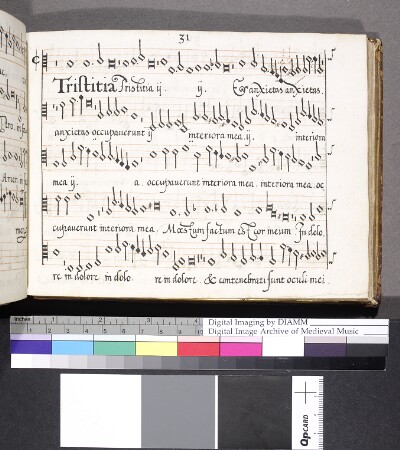 31
Tristitia Tristitia ij. ij. Et anxietas anxietas.
anxietas occupaverunt ij interiora mea. ij. interiora
mea ij. a. occupaverunt interiora mea. interiora mea. oc
cupaverunt interiora mea. Moestum factum est cor meum In dolo
re in dolore in dolo. re in dolore. & contenebrati sunt oculi mei.
inches 1 2 3 4 5 6 7 8
Digital Imaging by DIAMM
Digital Image Archive of Medieval Music
QPCARD